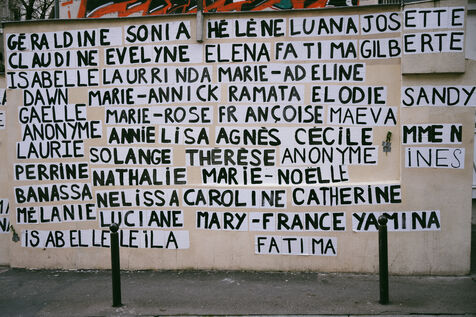 GÉRALDINE SONIA HÉLÈNE LUANA JOSETTE
CLAUDINE EVELYNE ELENA FATIMA GILBERTE
ISABELLE LAURRINDA MARIE-ADELINE
DAWN MARIE-ANNICK RAMATA ELODIE SANDY
GAELLE MARIE-ROSE FRANÇOISE MAEVA
ANONYME ANNIE LISA AGNÈS CÉCILE MMEN
LAURIE SOLANGE THÉRÈSE ANONYME INES
PERRINE NATHALIE MARIE-NOELLE
BANASSA NELISSA CAROLINE CATHERINE
MÉLANIE LUCIANE MARY-FRANCE YAMINA
ISABELLE LEÏLA FATIMA